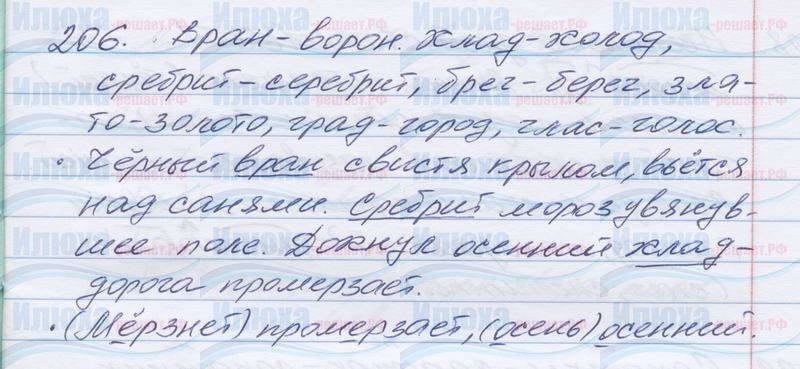 206. Вран-ворон. Хлад-холод,
сребрит-серебрит, брег-берег, зла-
то-золото, град-город, глас-голос.
• Чёрный вран свистя крылом, вьётся
над санями. Сребрит мороз увянув-
шее поле. Дохнул осенний хлад-
дорога промерзает.
• (Мёрзнет) промерзает, (осень) осенний.